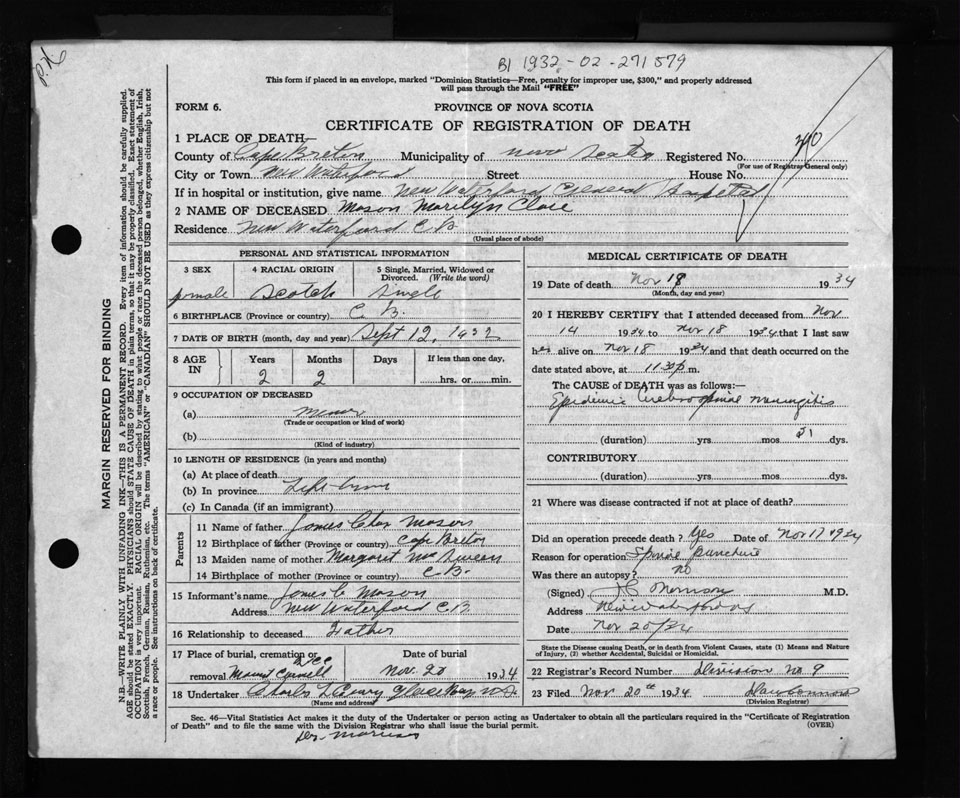 B1 1932-02-271579
This form if placed in an envelope, marked "Dominion Statistics—Free, penalty for improper use, $300," and properly addressed
will pass through the Mail "FREE"
FORM 6.
PROVINCE OF NOVA SCOTIA
CERTIFICATE OF REGISTRATION OF DEATH
1 PLACE OF DEATH—
County of Cape Breton Municipality of Nova Scotia Registered No.
(For use of Registrar General only)
City or Town New Waterford Street House No.
If in hospital or institution, give name New Waterford General Hospital
2 NAME OF DECEASED Mason Marilyn Clare
Residence New Waterford C B
(Usual place of abode)
PERSONAL AND STATISTICAL INFORMATION
3 SEX
female
4 RACIAL ORIGIN
Scotch
5 Single, Married, Widowed or
Divorced. (Write the word)
Single
6 BIRTHPLACE (Province or country) C. B.
7 DATE OF BIRTH (month, day and year) Sept 12, 1932
8 AGE IN
Years Months Days If less than one day,
2 2 hrs. or min.
9 OCCUPATION OF DECEASED
(a)
(Trade or occupation or kind of work)
(b)
(Kind of industry)
10 LENGTH OF RESIDENCE (in years and months)
(a) At place of death
(b) In province Life-time
(c) In Canada (if an immigrant)
Parents
11 Name of father James Chas Mason
12 Birthplace of father (Province or country) Cape Breton
13 Maiden name of mother Margaret
14 Birthplace of mother (Province or country) C B.
15 Informant's name James C Mason
Address New Waterford C B
16 Relationship to deceased Father
17 Place of burial, cremation or
removal Mount Carmell
Date of burial
Nov. 20 1934
18 Undertaker Charles Glace Bay N.S.
(Name and address)
MEDICAL CERTIFICATE OF DEATH
19 Date of death Nov 18 1934
(Month, day and year)
20 I HEREBY CERTIFY that I attended deceased from Nov
14 1934 to Nov 18 1934 that I last saw
her alive on Nov 18 1934 and that death occurred on the
date stated above, at 11.30 p m.
The CAUSE of DEATH was as follows:—
Epidemic Cerebrospinal Meningitis
(duration) yrs. mos. dys.
CONTRIBUTORY
(duration) yrs. mos. dys.
21 Where was disease contracted if not at place of death?
Did an operation precede death? Yes Date of Nov 17 1934
Reason for operation Spinal Puncture
Was there an autopsy? No
(Signed) Morrison M.D.
Address New Waterford NS
Date Nov 20/34
State the Disease causing Death, or in death from Violent Causes, state (1) Means and Nature
of Injury, (2) whether Accidental, Suicidal or Homicidal.
22 Registrar's Record Number Division No. 9
23 Filed Nov 20th 1934
(Division Registrar)
Sec. 46—Vital Statistics Act makes it the duty of the Undertaker or person acting as Undertaker to obtain all the particulars required in the "Certificate of Registration
of Death" and to file the same with the Division Registrar who shall issue the burial permit.
(OVER)
MARGIN RESERVED FOR BINDING
N.B.—WRITE PLAINLY WITH UNFADING INK—THIS IS A PERMANENT RECORD. Every item of information should be carefully supplied.
AGE should be stated EXACTLY. PHYSICIANS should STATE CAUSE OF DEATH in plain terms, so that it may be properly classified. Exact statement of
OCCUPATION is very important. RACIAL ORIGIN will be described by stating to what people or race the deceased person belonged, whether English, Irish,
Scottish, French, German, Russian, Ruthenian, etc. The terms "AMERICAN" or "CANADIAN" SHOULD NOT BE USED as they express citizenship but not
a race or people. See instructions on back of certificate.